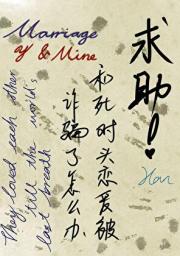 Marriage
of & Mine
求助!
和死对头恋爱被
诈骗了怎么办
They loved each other
'till the world's
last breath